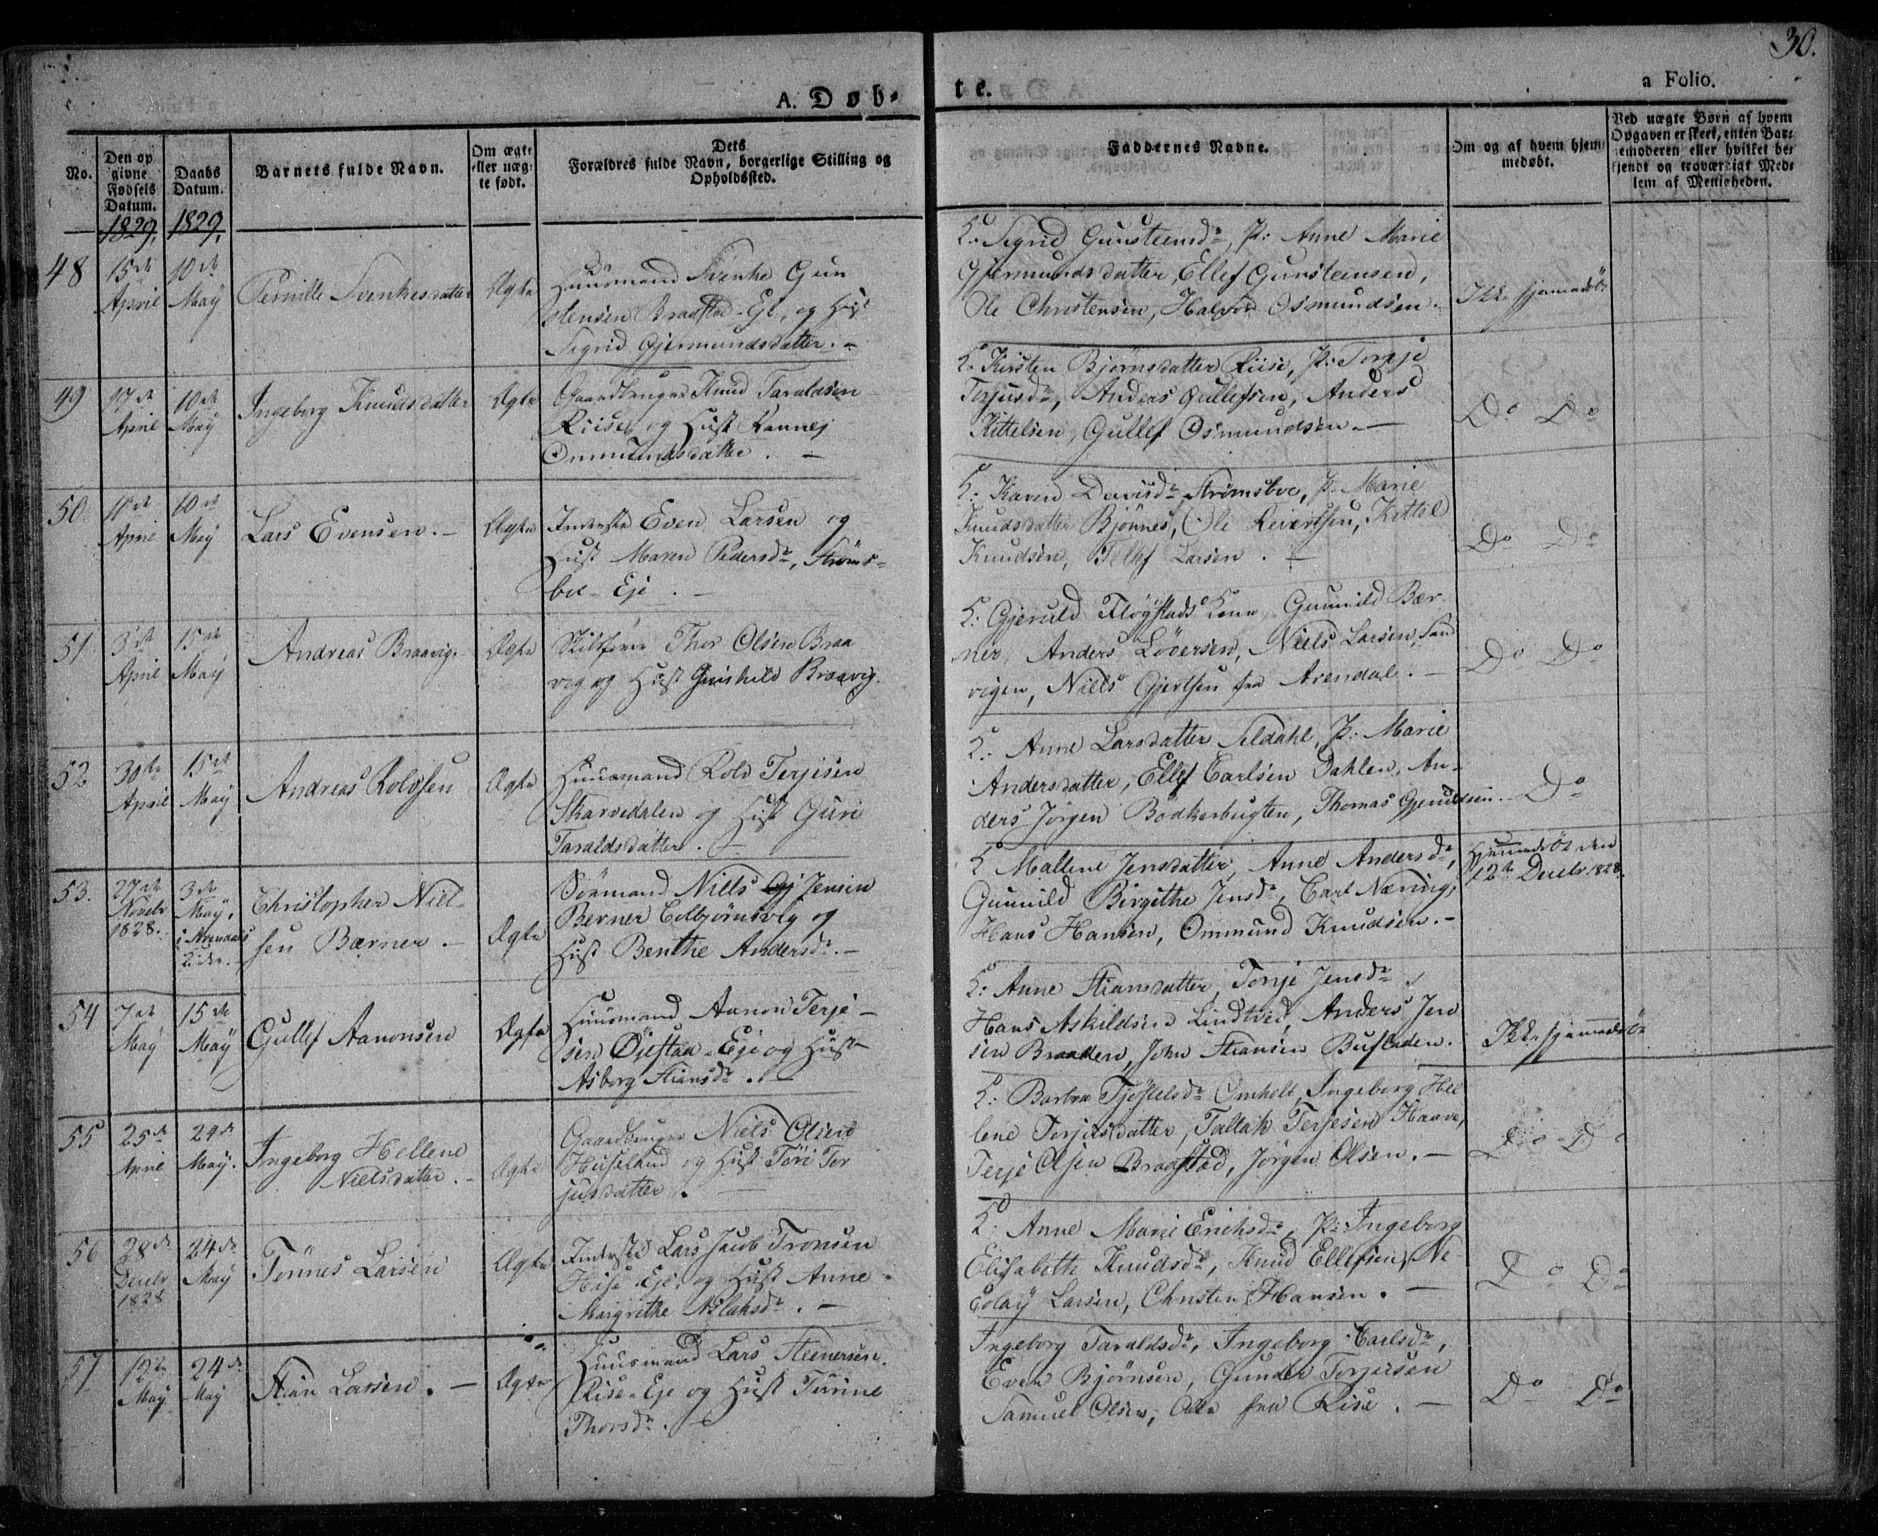 30.
a Folio.
A. Døb-
te.
No.
Den op
givne
Fødsels
Datum.
Daabs
Datum.
Barnets fulde Navn.
Om ægte
eller uæg-
te født.
Dets
Forældres fulde Navn, borgerlige Stilling og
Opholdssted.
Faddernes Navne.
Om og af hvem hjem-
medøbt.
Ved uægte Børn af hvem
Opgaven er skeet, enten Bar-
nemoderen eller hvilket be-
kjendt og troværdigt Med-
lem af Menigheden.
1829. 1829.
48
15de
April
10de
May
Pernille Svenkesdatter
Ægte
Huusmand Svenke Gun
stensen Braastad-Eje, og Hust
Sigrid Gjermundsdatter. -
F. Sigrid Gunsteensdr, P: Anne Marie
Gjermundsdatter, Ellef Gunsteensen,
Ole Christensen, Halvor Osmundsen -
Ikke hjemmedöbt
49
17de
April
10de
May
Ingeborg Knudsdatter
Ægte
Gaardbruger Knud Taraldsen
Riise, og Hust Ronnej
Ommundsdatter. -
F. Kirsten Bjørnsdatter Riise, P: Torgje
Terjusdr, Anders Gullefsen, Anders
Kittelsen, Gullef Osmundsen. -
Do Do
50
10de
April
10de
May
Lars Evensen. -
Ægte
Inderste Even Larsen og
Hust Maren Pedersdr, Strøms-
boe-Eje. -
F: Karen Davisdr Strømsboe, P. Marie
Knudsdatter Bjönnes, Ole Leiertsen, Kittel
Knudsen, Tellef Larsen. -
Do Do
51
3die
April
15de
May
Andreas Braavig.
Ægte
Skibsfører Thor Olsen Braa
vig og Hust Gunhild Braavig.
F: Gjeruld Fløgstads Kone, Gunnild Bær-
ner, Anders Løversen, Niels Larsen, Sand
vigen, Niels Gjertsen fra Arendal. -
Do Do
52
30te
April
15de
May
Andreas Rolvsen
Ægte
Huusmand Rolv Terjesen
Skarvedalen og Hust Guri
Taraldsdatter. -
F: Anne Larsdatter Seldahl, P: Marie
Andersdatter, Ellef Carlsen Dahlen, An-
ders Jørgen Bödkerbugten, Thomas Gjeruldsen
Do
53.
27de
Novebr
1828.
3de
May,
i Arendals
Kirke.
Christopher Niel-
sen Bærner. -
Ægte
Sømand Niels Jensen
Berner Colbjørnsvig og
Hust Benthe Andersdr. -
F Mallene Jensdatter, Anne Andersdr,
Gunnild Birgithe Jensdr, Carl Næring,
Hans Hansen, Ommund Knudsen. -
Hjemmedöbt den
12te Decebr 1828.
54
7de
May
15de
May
Gullef Aanonsen
Ægte
Huusmand Aanon Terje-
sen Øjestad-Eje og Hust
Asborg Stiansdr. -
F: Anne Stiansdatter, Tonje Jensdr,
Hans Askildsen Lindtved, Anders Jen
sen Braaden, John Stiansen Busleden.
Ikke hjemmedöbt
55
25de
April
24de
May.
Ingeborg Hellene
Nielsdatter. -
Ægte
Gaardbruger Niels Olsen
Huseland og Hust Tøri Ter
jusdatter. -
F: Barbra Tjostelsdr Omholt, Ingeborg Hel
lene Terjusdatter, Tallak Terjesen Haave,
Terje Olsen Braastad, Jørgen Olsen. -
Do Do
56
28de
Decebr
1828
24de
May
Tønnes Larsen
Ægte
Inderste Lars Jacob Tronsen
Riise-Eje, og Hust Anne
Margrethe Aslaksdr. -
F: Anne Marie Erichsdr, P: Ingeborg
Elisabeth Knudsdr, Knud Ellefsen, Ne-
colay Larsen, Christen Hansen. -
Do Do
57
12te
May
24de
May
Stian Larsen. -
Ægte
Huusmand Lars Steenersen.
Riise-Eje og Hust Tørine
Thorsdr. -
Ingeborg Taraldsdr, Ingeborg Carlsdr,
Even Bjørnsen, Gunder Terjesen
Samuel Olsen, Alle fra Riise. -
Do Do